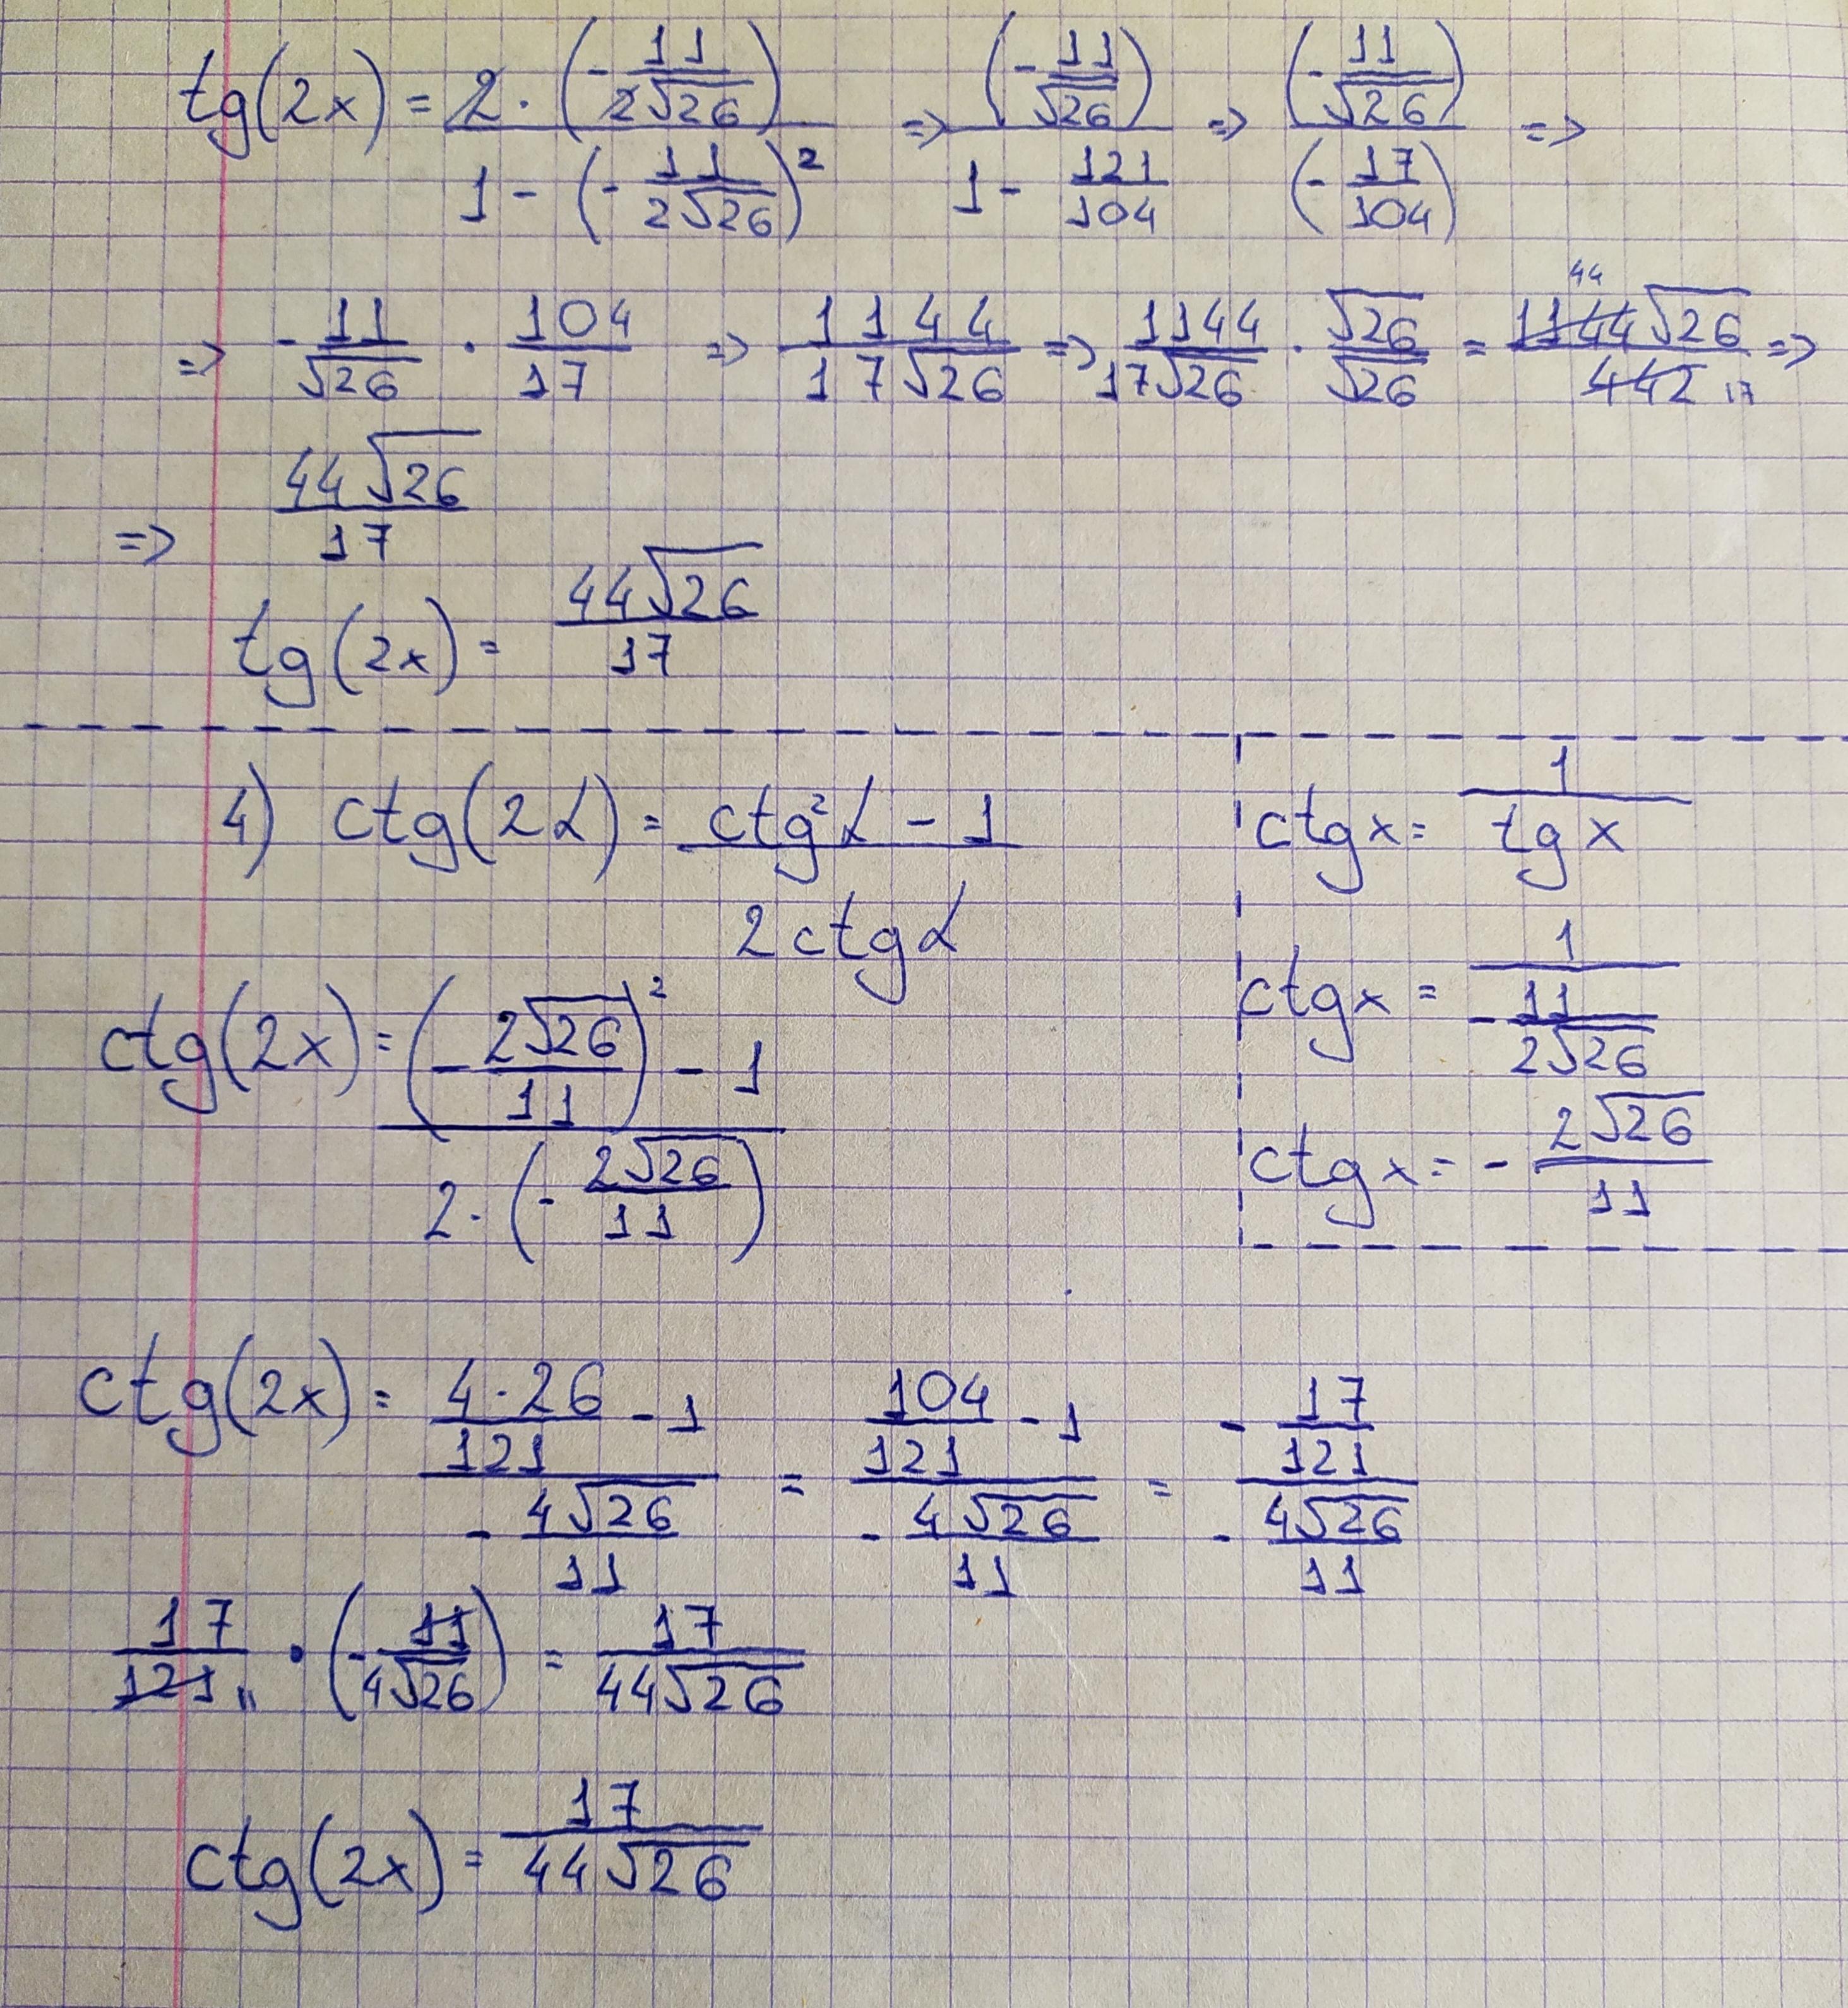 tg(2x) = (2 · (-11/(2√26))) / (1 - (-11/(2√26))²) => (-11/√26) / (1 - 121/104) => (-11/√26) / (-17/104) =>
=> -11/√26 · 104/17 => 1144/(17√26) => 1144/(17√26) · √26/√26 = 1144√26/442 44 17 =>
=> 44√26/17
tg(2x) = 44√26/17
4) ctg(2α) = (ctg²α - 1) / (2ctgα)
ctgx = 1/(tgx)
ctgx = 1/(-11/(2√26))
ctgx = -2√26/11
ctg(2x) = ((-2√26/11)² - 1) / (2 · (-2√26/11))
ctg(2x) = (4·26/121 - 1) / (-4√26/11) = (104/121 - 1) / (-4√26/11) = (-17/121) / (-4√26/11)
17/121 11 · (-11/(4√26)) = 17/(44√26)
ctg(2x) = 17/(44√26)